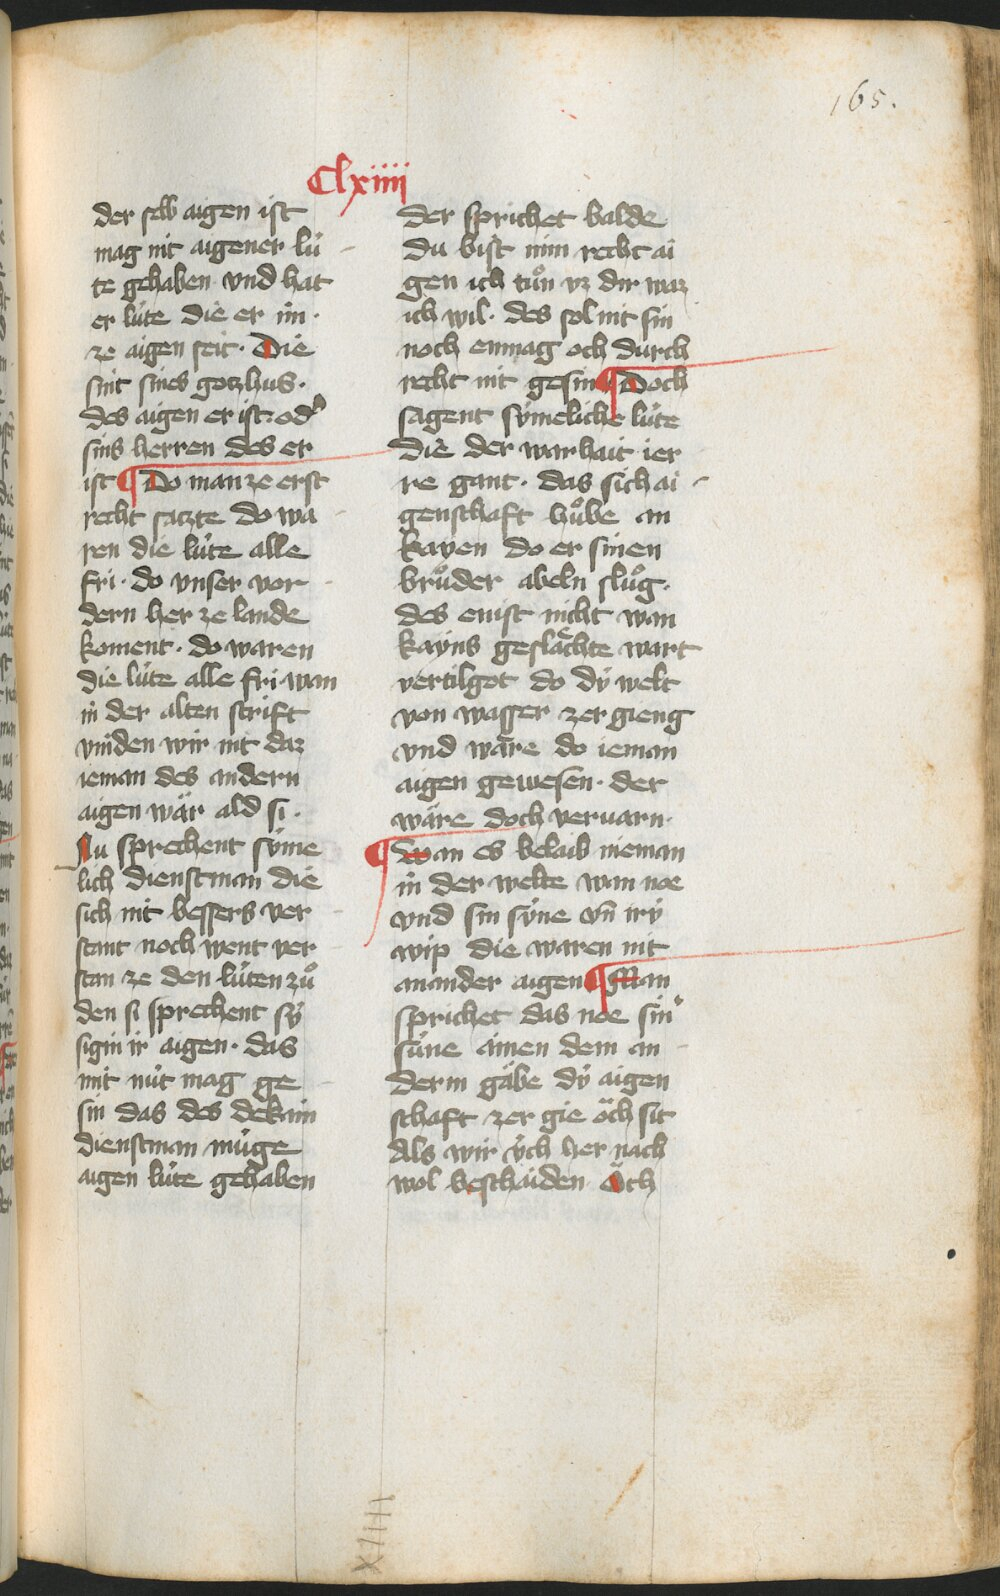 165.
Clxiiii
der selb aigen ist
mag nit aigener lú
te gehaben vnd hat
er lúte die er im
ze aigen seit. Die
sint sines gotzhus.
des aigen er ist: od'
sins herren des er
ist ¶ Do man ze erst
recht satzte do wa
ren die lúte alle
fri. do vnser vor
dern her ze lande
koment. do waren
die lúte alle fri. wan
in der alten scrift
vinden wir nit daz
ieman des andern
aigen wär ald si.
Nu sprechent sýme
lich dienstman die
sich nit bessers ver
stant noch went ver
stan ze den lúten zuͦ
den si sprechent sý
sigin ir aigen. das
mit nút mag ge
sin das des dekain
dienstman múge
aigen lúte gehaben
der sprichet balde
du bist min recht ai
gen ich tuͦn vz dir waz
ich wil. des sol nit sin
noch enmag och durch
recht nit gesin ¶ Doch
sagent sýmeliche lúte
die der warhait ier
re gant. das sich ai
genschaft huͦbe an
kayen do er sinen
bruͦder abeln sluͦg.
des enist nicht wan
kayns geslächte wart
vertilgot do dý welt
von wasser zer gieng
vnd wäre do ieman
aigen gewesen. der
wäre doch veruarn.
¶ wan es belaib nieman
in der welte wan noe
vnd sin sýne vn̄ irý
wip die waren nit
anander aigen ¶ Man
sprichet das noe sin
súne ainen dem an
derm gäbe dý aigen
schaft zer gie öch sit
Als wir ých her nach
wol beschaiden. Öch
XIIII